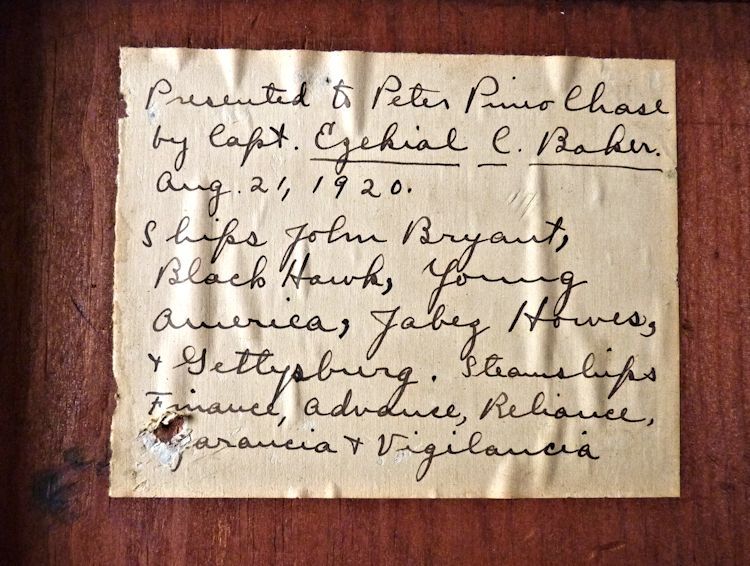 Presented to Peter Pineo Chase
by Capt. Ezekial C. Baker.
Aug. 21, 1920.
Ships John Bryant,
Black Hawk, Young
America, Jabez Howes,
& Gettysburg. Steamships
Finance, Advance, Reliance,
& Vigilancia